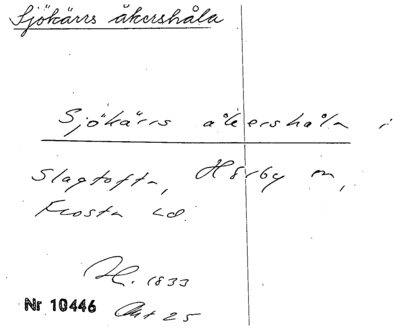 Sjökärrs åkershåla
Sjökärrs åkershåla i
Slagtofta, Hörby sn,
Frosta hd.
H. 1833
Nr 10446 Akt 25